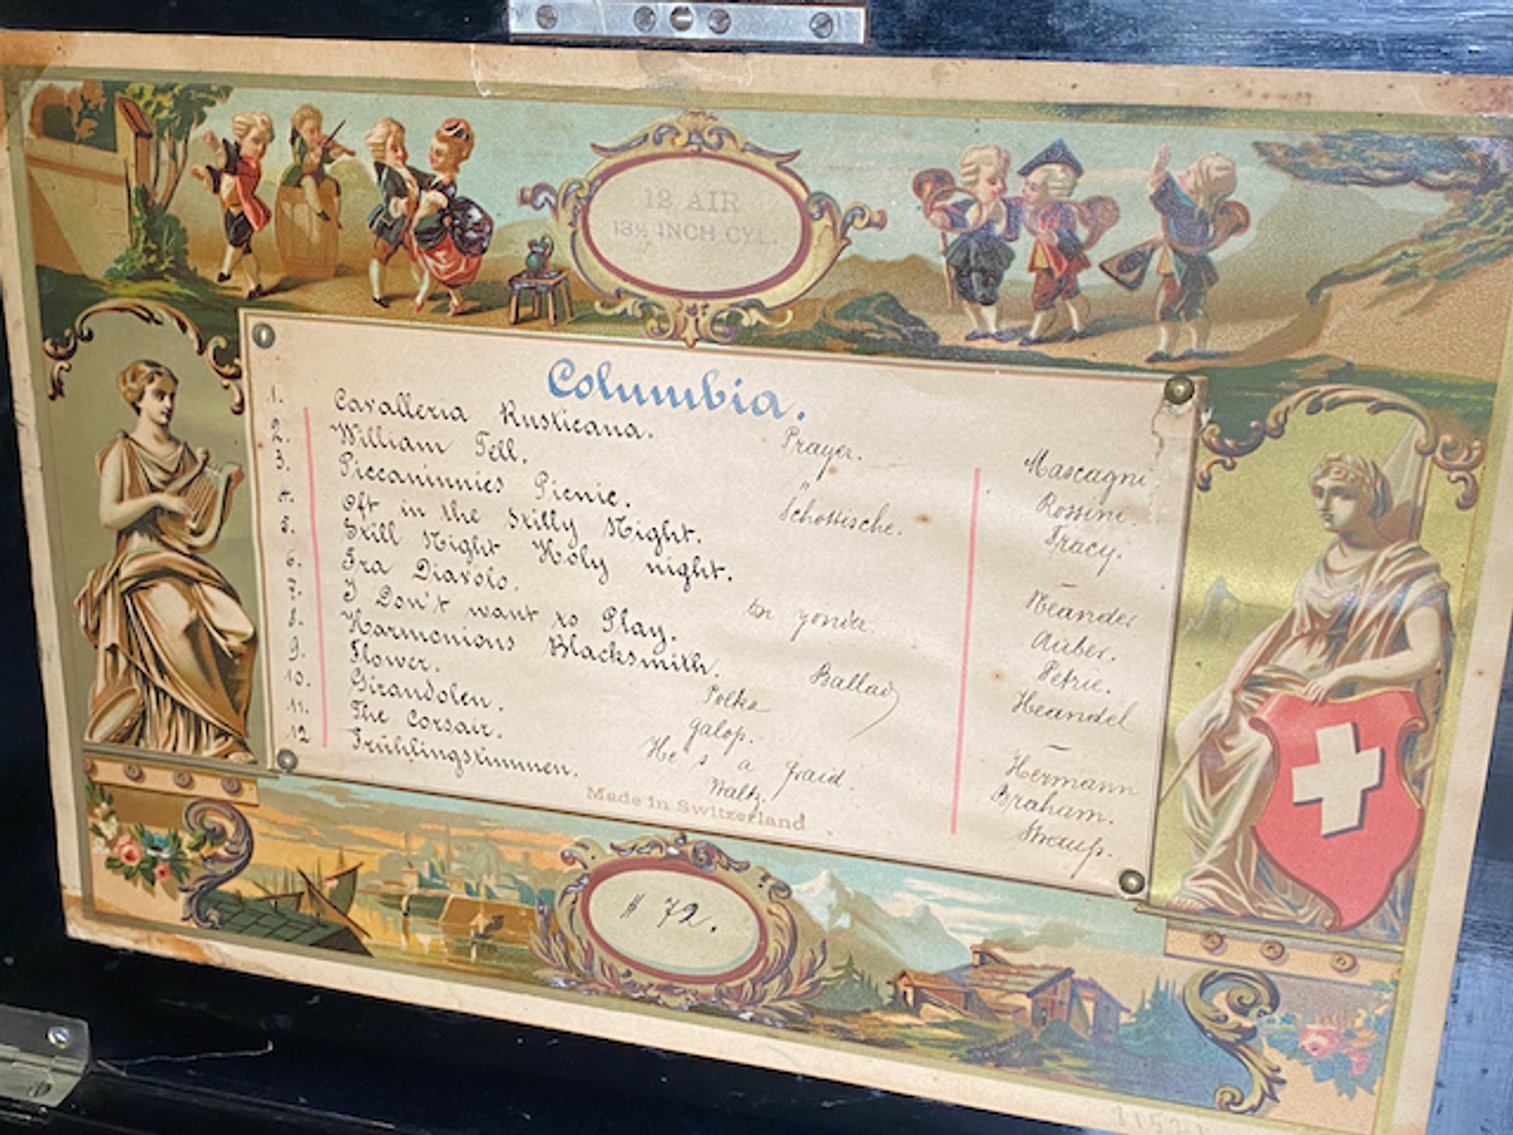 12 AIR
13½ INCH CYL.
Columbia.
1. Cavalleria Rusticana. Prayer. Mascagni.
2. William Tell. " Rossini.
3. Piccaninnies Picnic. Schottische. Tracy.
4. Oft in the Stilly Night. –
5. Still Night Holy night. Neander
6. Fra Diavolo. On yonder Auber.
7. I Don't want to Play. Ballad Petrie.
8. Harmonious Blacksmith. Heandel
9. Flower. Polka –
10. Girandolen. Galop. Hermann
11. The Corsair. He s a fraid. Braham.
12 Frühlingstimmen. Waltz.
Made in Switzerland
# 72.